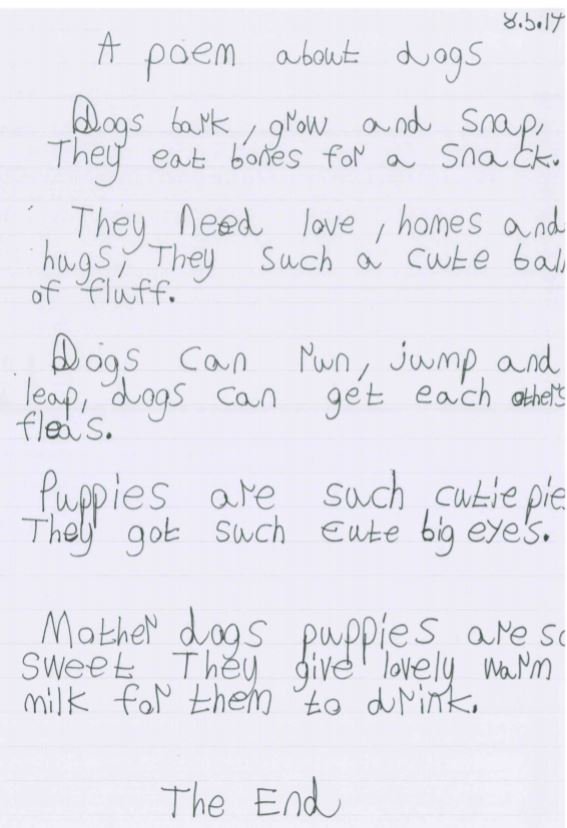 8.5.14
A poem about dogs
Dogs bark, grow and snap,
They eat bones for a snack.
They need love, homes and
hugs, They such a cute ball
of fluff.
Dogs can run, jump and
leap, dogs can get each others
fleas.
Puppies are such cutie pie
They got such cute big eyes.
Mother dogs puppies are so
sweet They give lovely warm
milk for them to drink.
The End